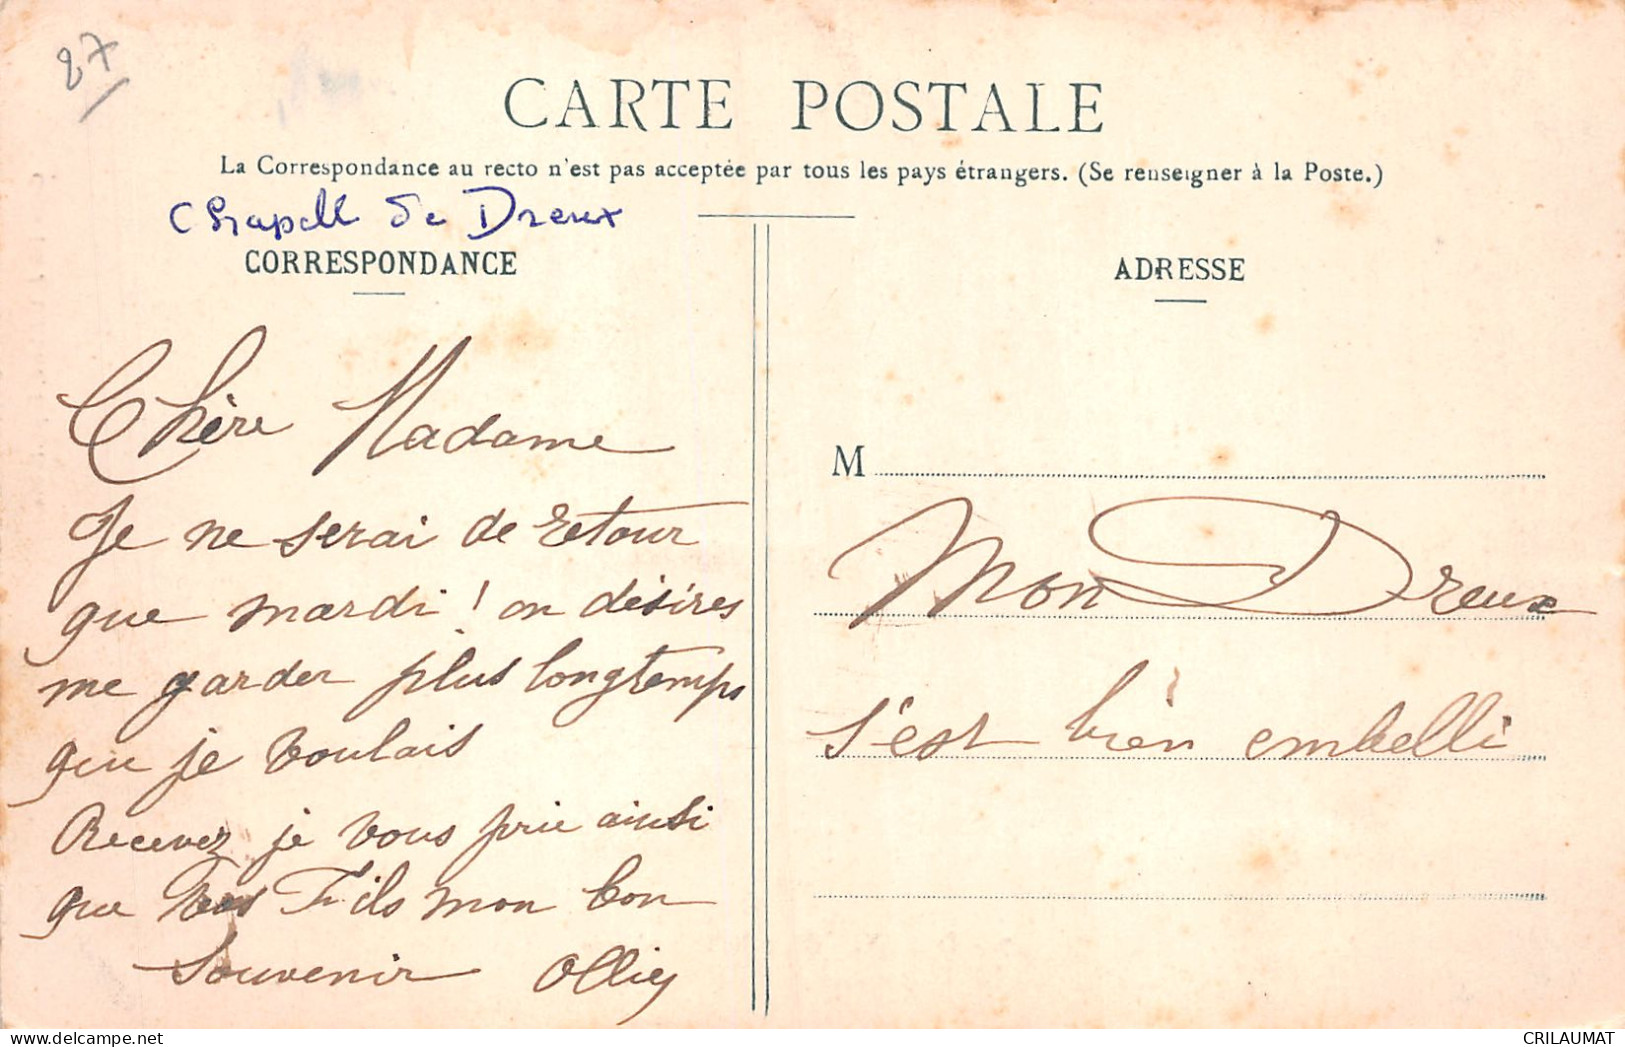 87
CARTE POSTALE
La Correspondance au recto n'est pas acceptée par tous les pays étrangers. (Se renseigner à la Poste.)
Chapelle de Dreux
CORRESPONDANCE
Chère Madame
Je ne serai de retour
que mardi ! on désires
me garder plus longtemps
que je voulais
Recevez je vous prie ainsi
que vos Fils mon bon
Souvenir Ollix
ADRESSE
M
Mon Dreux
s'est bien embelli
CRILAUMAT